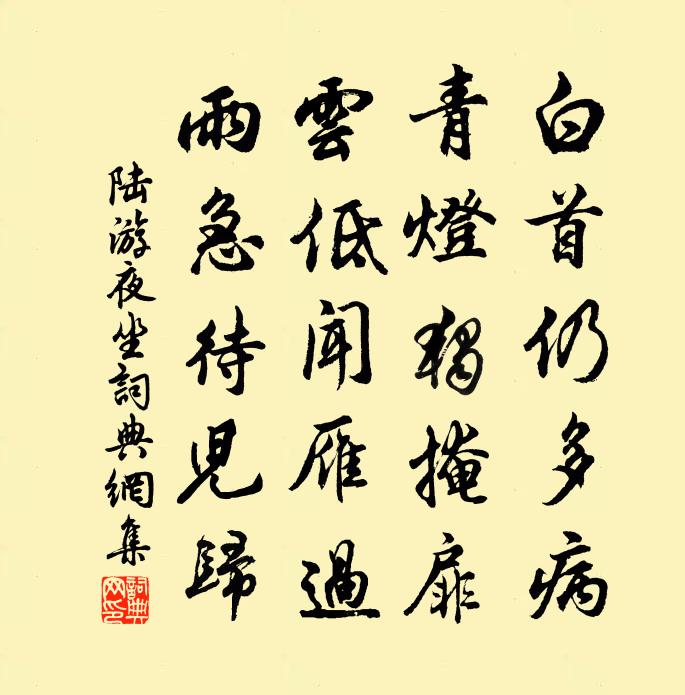 白首仍多病
青燈獨掩扉
雲低聞雁過
雨急待兒歸
陸游夜坐詞典網集
詞典網印